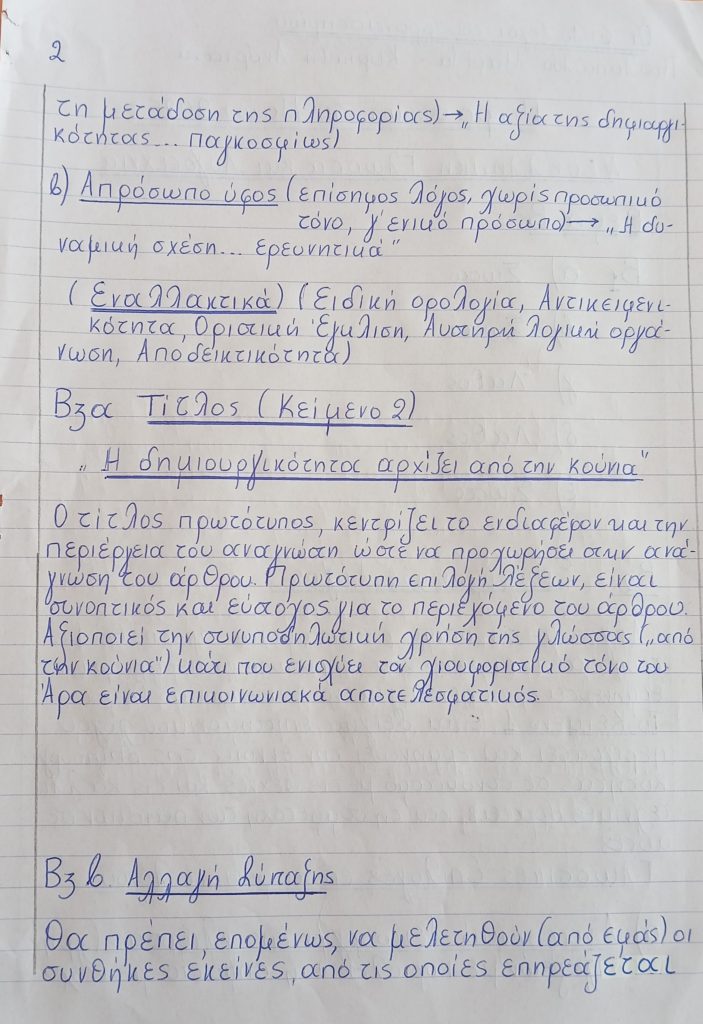 2
τη μετάδοση της πληροφορίας) → „Η αξία της δημιουργι-
κότητας... παγκοσμίως)
β) Απρόσωπο ύφος (επίσημος λόγος, χωρίς προσωπικό
τόνο, γ' ενικό πρόσωπο) → „Η δυ-
ναμική σχέση... ερευνητικά"
(Εναλλακτικά) (Ειδική ορολογία, Αντικειμενι-
κότητα, Οριστική Έγκλιση, Αυστηρή λογική οργά-
νωση, Αποδεικτικότητα)
Β3α Τίτλος (Κείμενο 2)
„Η δημιουργικότητα αρχίζει από την κούνια"
Ο τίτλος πρωτότυπος, κεντρίζει το ενδιαφέρον και την
περιέργεια του αναγνώστη ώστε να προχωρήσει στην ανά-
γνωση του άρθρου. Πρωτότυπη επιλογή λέξεων, είναι
συνοπτικός και εύστοχος για το περιεχόμενο του άρθρου.
Αξιοποιεί την συνυποδηλωτική χρήση της γλώσσας („από
την κούνια") κάτι που ενισχύει τον χιουμοριστικό τόνο του
Άρα είναι επικοινωνιακά αποτελεσματικός.
Β3β. Αλλαγή Σύνταξης
Θα πρέπει, επομένως, να μελετηθούν (από εμάς) οι
συνθήκες εκείνες, από τις οποίες επηρεάζεται